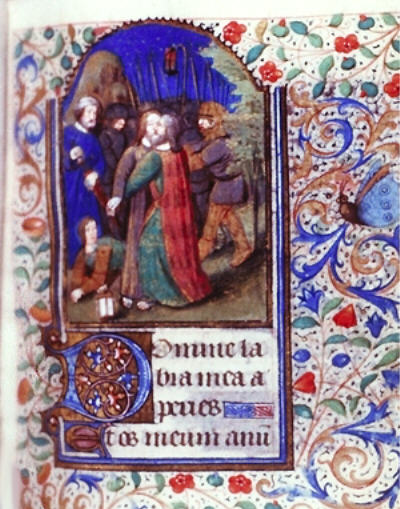 Domine la
bra mea a
peries
Et os meum anū